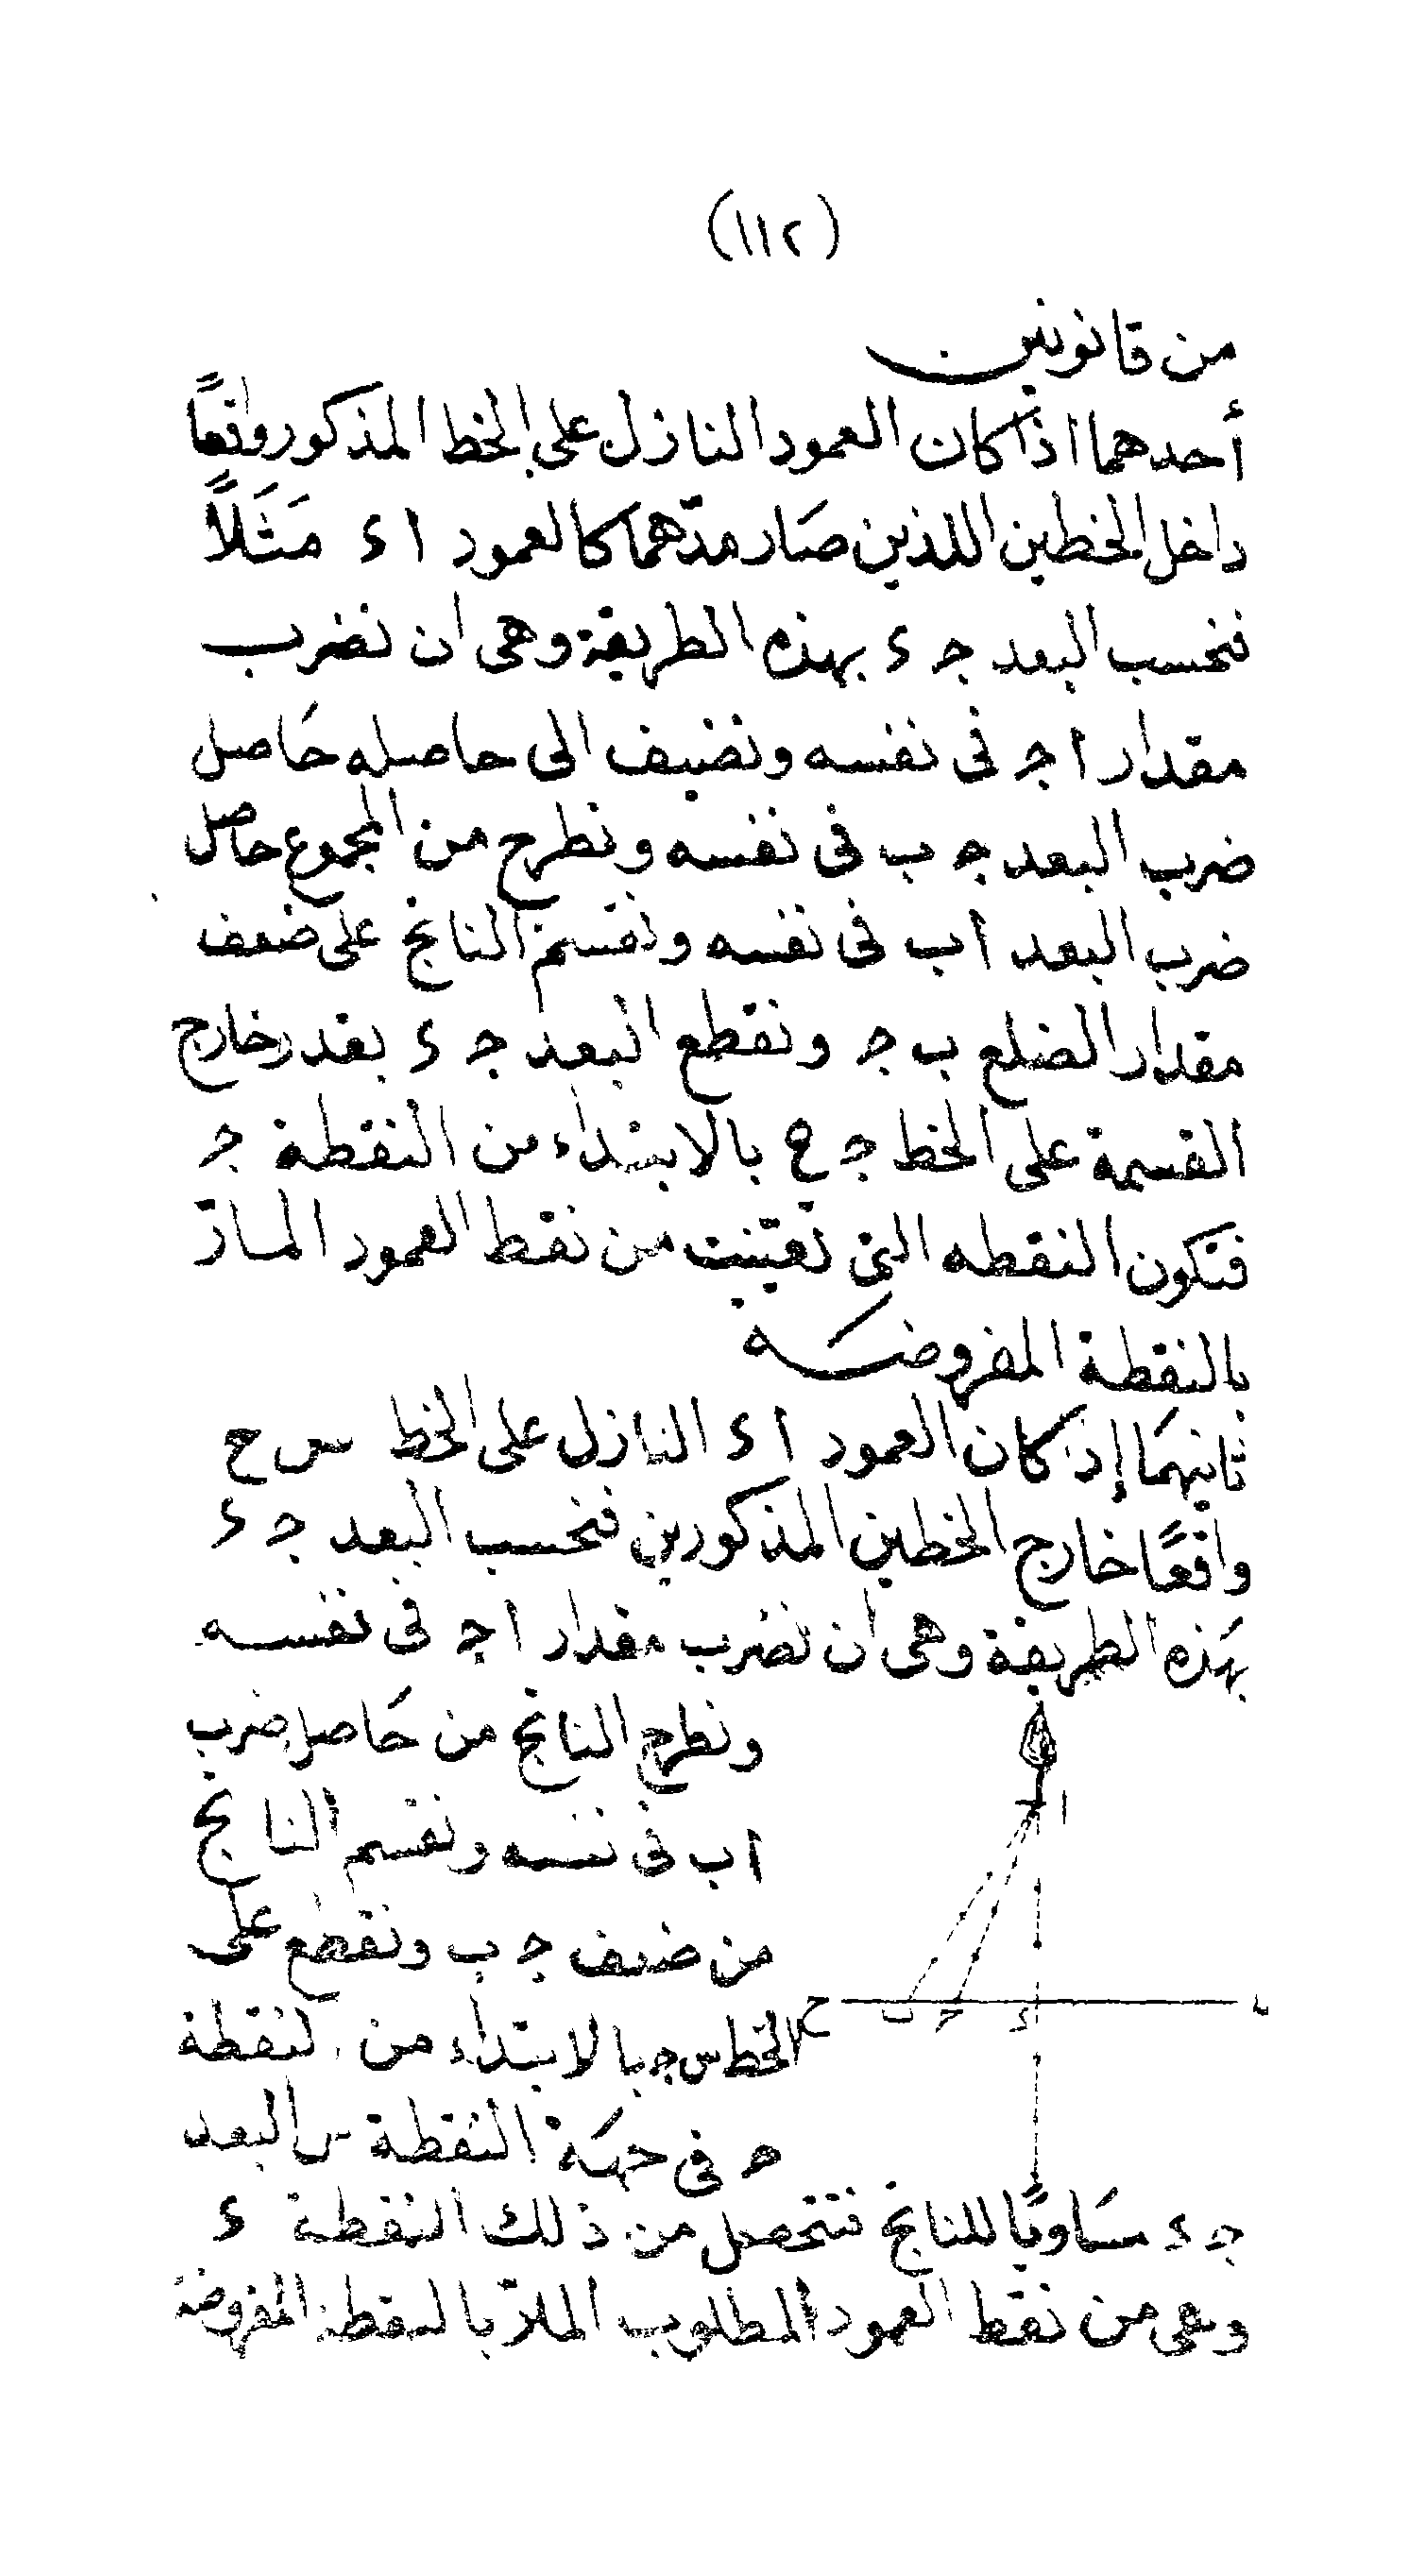 (١١٢)
من قانونين
أحدهما اذا كان العمود النازل على الخط المذكور واقعاً
داخل الخطين اللذين صَار مدّهما كالعمود ا ء مَثَلاً
فنحسب البعد جـ ء بهذه الطريقة وهى ان نضرب
مقدار ا جـ فى نفسه ونضيف الى حاصله حَاصل
ضرب البعد جـ ب فى نفسه ونطرح من المجموع حاصل
ضرب البعد اب فى نفسه ونقسم الناتج على ضعف
مقدار الضلع ب جـ ونقطع البعد جـ ء بقدر خارج
القسمة على الخط جـ ح بالابتداء من النقطة جـ
فتكون النقطه التى تعيّنت من نقط العمود المارّ
بالنقطة المفروضَـه
ثانيهمَا إذ كان العمود ا ء النازل على الخط س ح
واقعًا خارج الخطين المذكورين فنحسب البعد جـ ء
بهَذه الطريقة وهى ان نضرب مقدار ا جـ فى نفسـه
ونطرح الناتج من حَاصل ضرب
اب فى نفسه ونقسم الناتج
من ضعف جـ ب ونقطع على
الخط س جـ بالابتداء من لنقطة
جـ فى جهَة النقطة س البعد
جـ ء مسَاويًا للناتج فتتحصل من ذلك النقطة ء
وهى من نقط العمود المطلوب المارّ بالنقطة المفروضة
ا
ح ب جـ ء